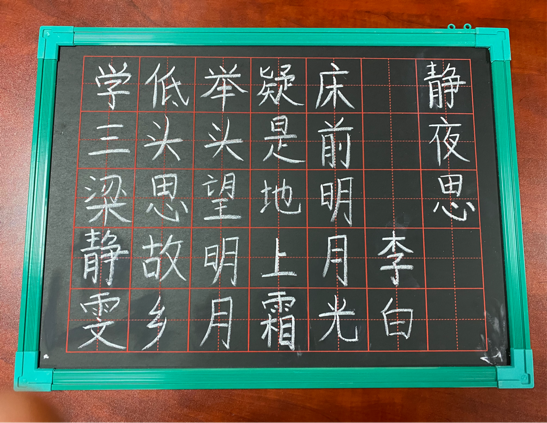 静夜思
李白
床前明月光
疑是地上霜
举头望明月
低头思故乡
学三梁静雯